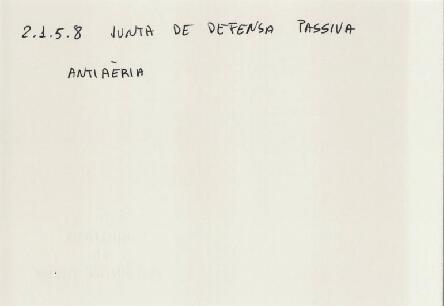 2.1.5.8 JUNTA DE DEFENSA PASSIVA
ANTIAÈRIA